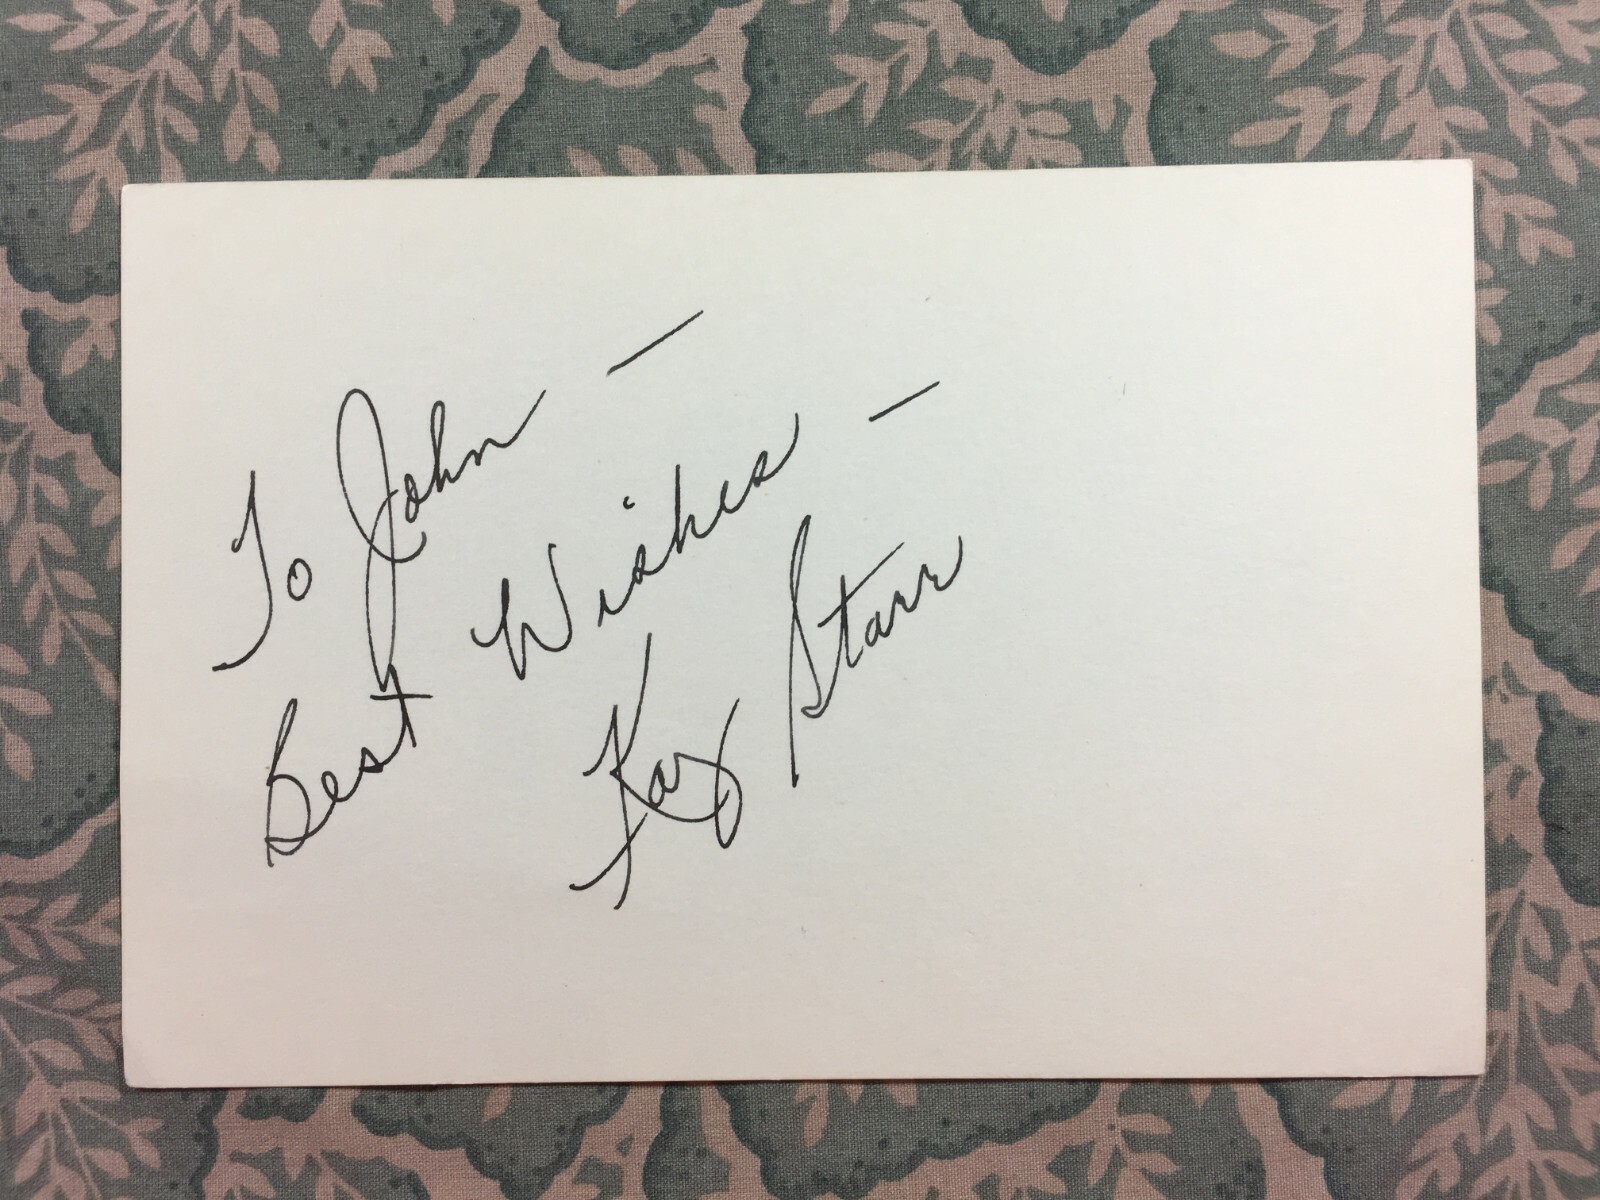 To John —
Best Wishes —
Kay Starr